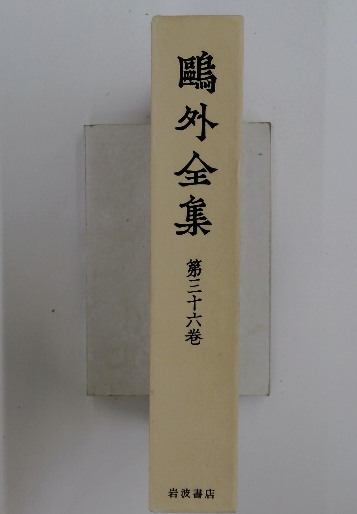 鷗外全集
第三十六巻
岩波書店